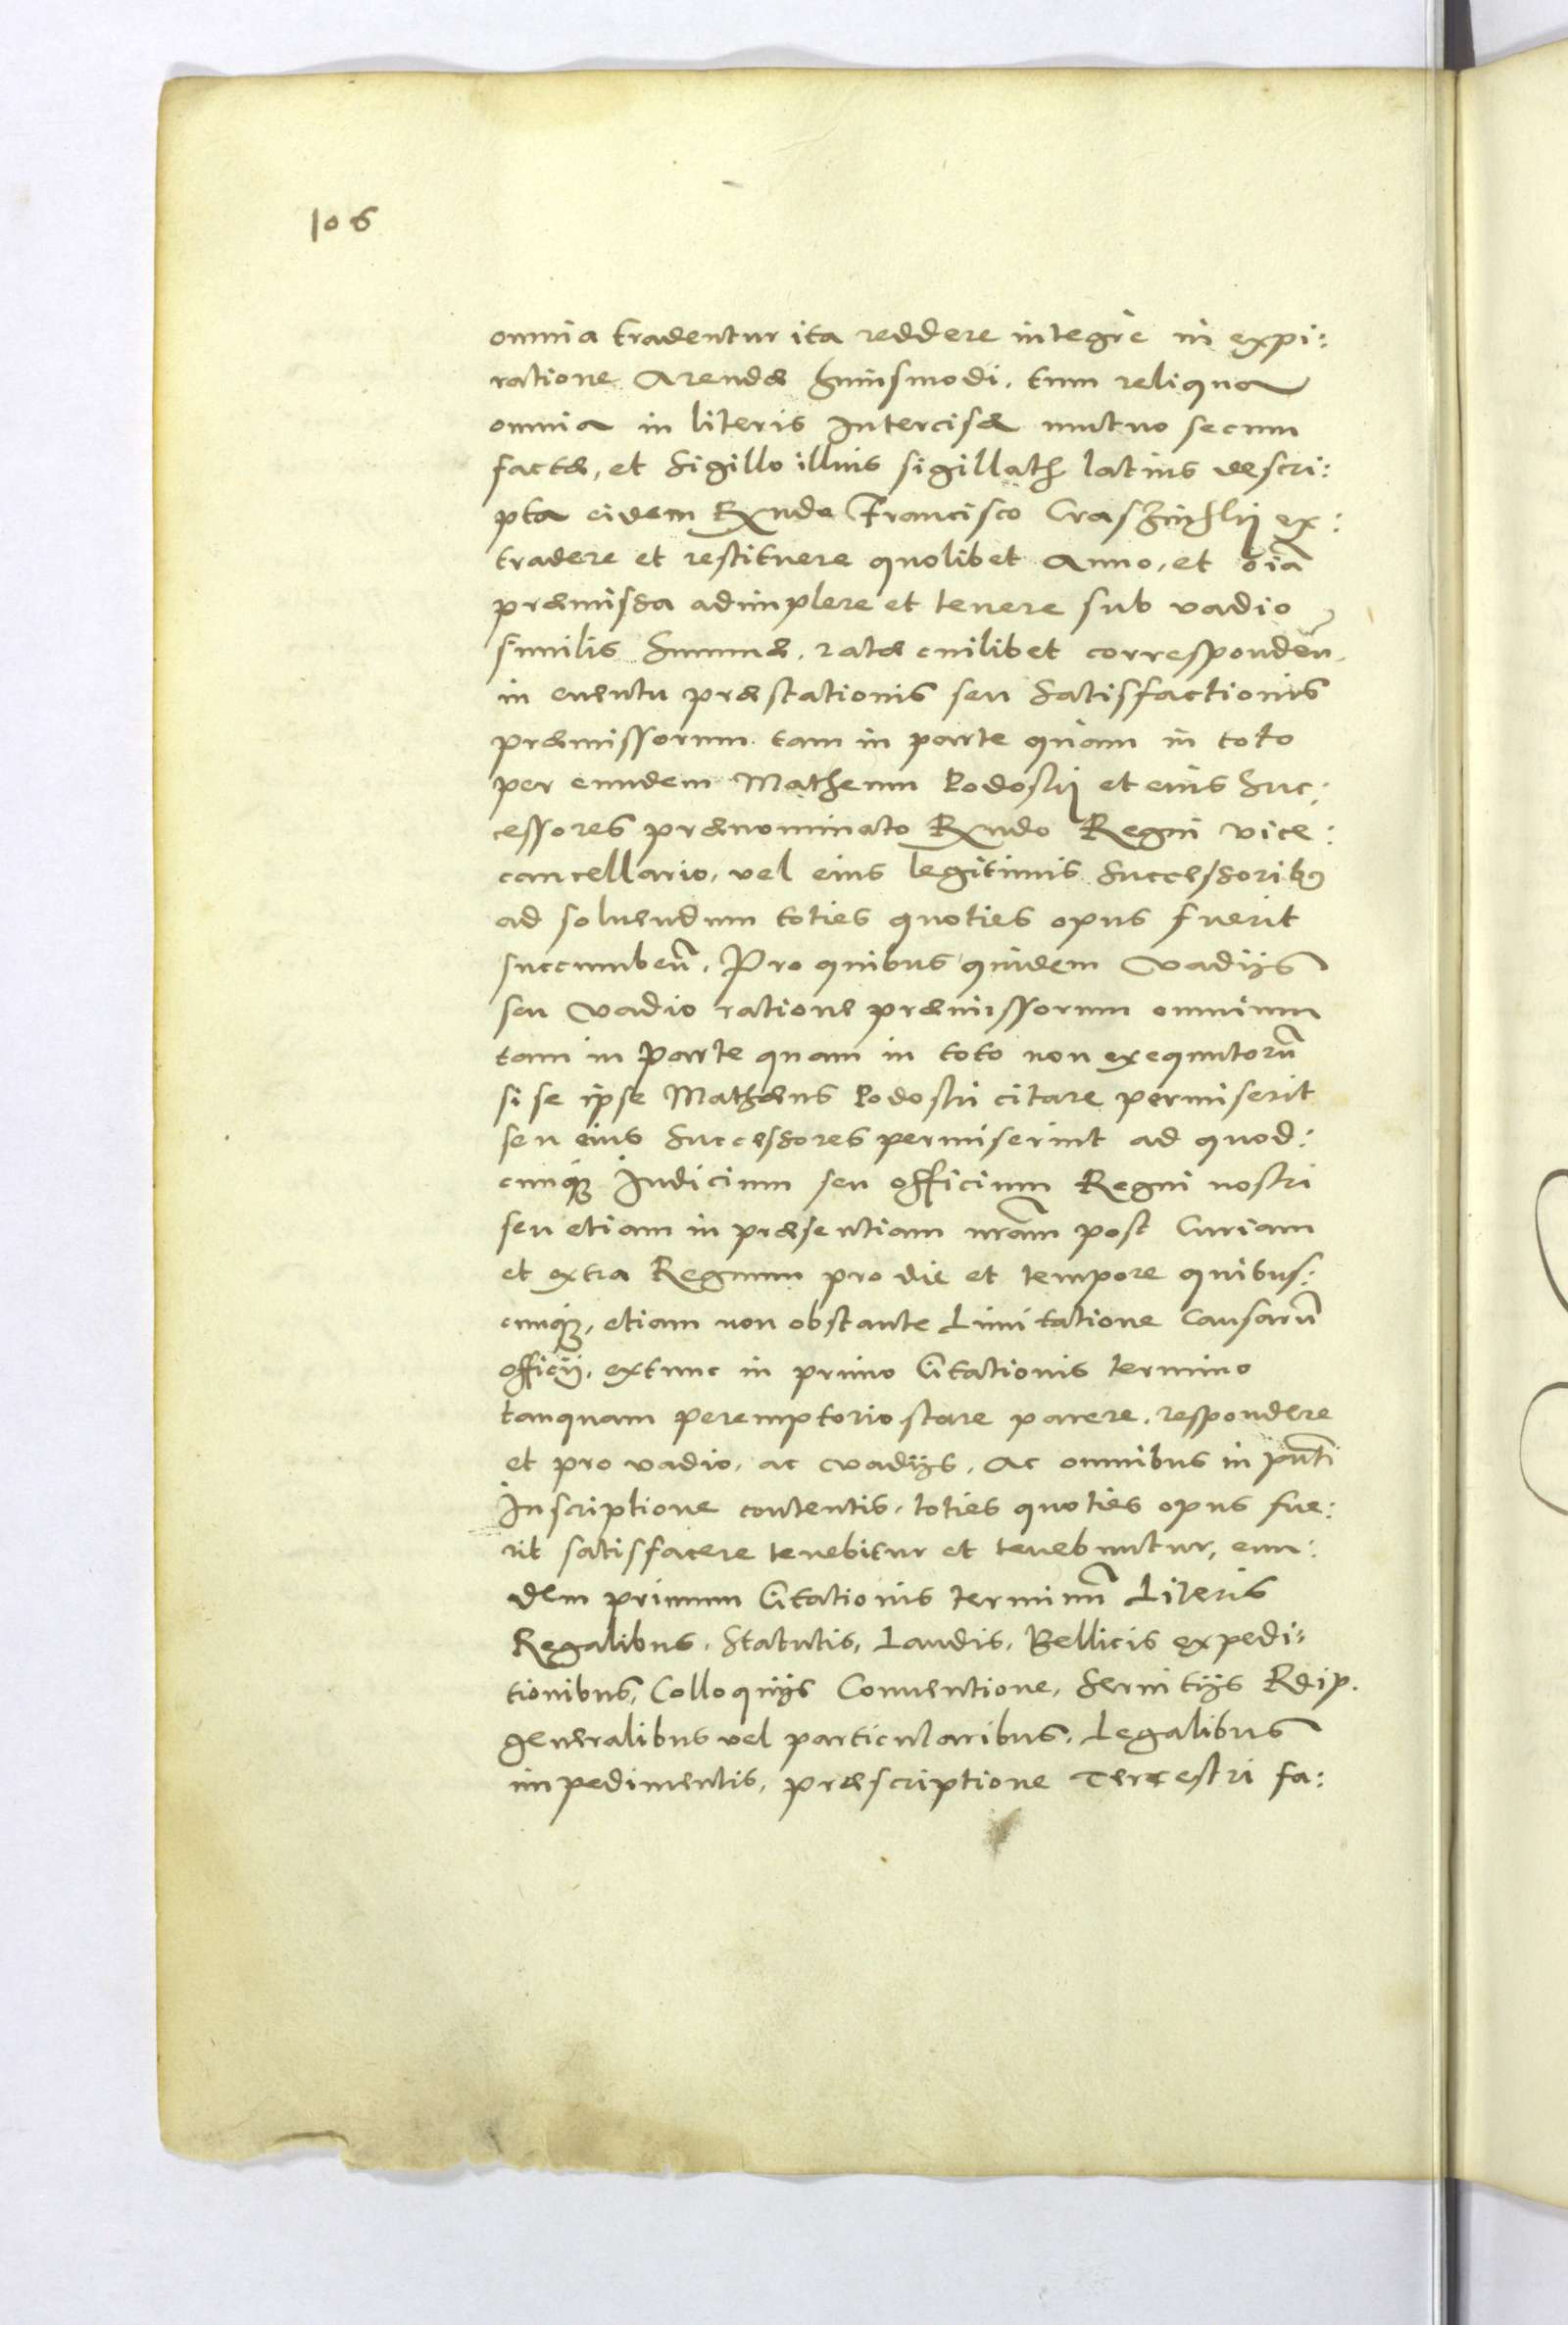 106
omnia tradentur ita reddere integre in expi:
ratione Arendæ huiusmodi. tum reliqua
omnia in literis Intercisæ mutuo secum
factæ, et Sigillo illius sigillatħ latius descri:
pta eidem Rxndo Francisco ex:
tradere et restituere quolibet Anno, et oĩa
præmissa adimplere et tenere sub vadio
similis Summæ, ratæ cuilibet corresponden̄.
in euentu præstationis seu Satisfactionis
præmissorum tam in parte quàm in toto
per eundem Matheum Podoski et eius Suc:
cessores prænominato Rxndo Regni vice:
cancellario, vel eius legitimis Successoribꝰ
ad soluendum toties quoties opus fuerit
succumben̄. Pro quibus quidem Vadijs
seu Vadio ratione præmissorum omnium
tam in parte quam in toto non exequutorū
si se ipse Mathæus Podoski citare permiserit
seu eius Successores permiserint ad quod:
cunqꝫ Iudicium seu officium Regni nostri
seu etiam in præsentiam nrãm post Curiam
et extra Regnum pro die et tempore quibus:
cunqꝫ, etiam non obstante Limitatione Causarū
officij, extunc in primo Citationis termino
tanquam peremptorio stare parere, respondere
et pro vadio, ac vadijs, Ac omnibus in pn̄ti
Inscriptione contentis, toties quoties opus fue:
rit satisfacere tenebitur et tenebuntur, eun:
dem primum Citationis terminū Literis
Regalibus, Statutis, Laudis, Bellicis expedi:
tionibus, Colloquijs Conuentione, Seruitijs Reip.
generalibus vel particularibus, Legalibus
impedimentis, præscriptione Terrestri fa: